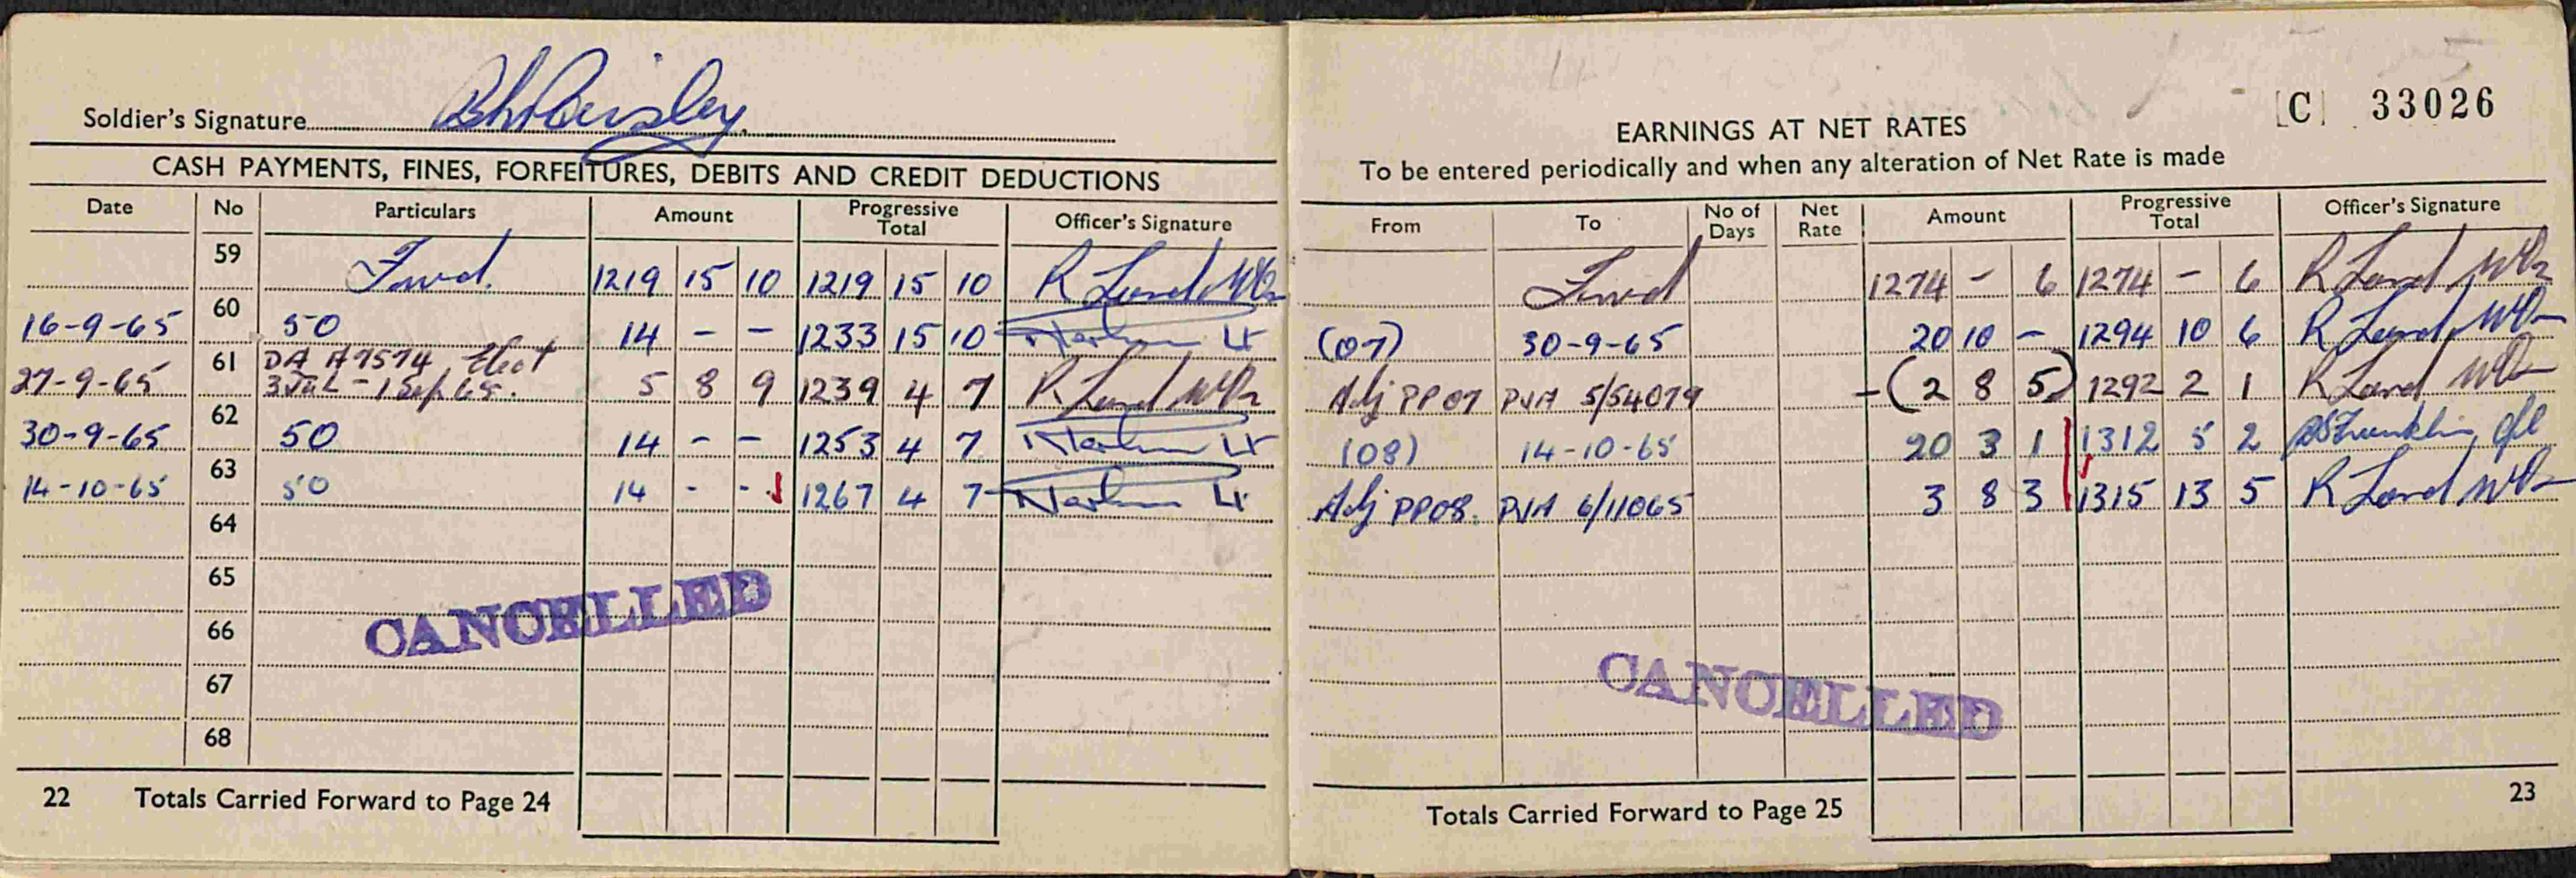 Soldier's Signature
CASH PAYMENTS, FINES, FORFEITURES, DEBITS AND CREDIT DEDUCTIONS
Date No Particulars Amount Progressive Total Officer's Signature
59 Fwd. 1219 15 10 1219 15 10 R Lord WO2
16-9-65 60 50 14 - - 1233 15 10 Lt
27-9-65 61 DA A7574 Elect 3 Jul - 1 Sep 65. 5 8 9 1239 4 7 R Lord WO2
30-9-65 62 50 14 - - 1253 4 7 Lt
14-10-65 63 50 14 - - 1267 4 7 Lt
64
65
66
67
68
CANCELLED
22 Totals Carried Forward to Page 24
[C] 33026
EARNINGS AT NET RATES
To be entered periodically and when any alteration of Net Rate is made
From To No of Days Net Rate Amount Progressive Total Officer's Signature
Fwd 1274 - 6 1274 - 6 R Lord WO2
(07) 30-9-65 20 10 - 1294 10 6 R Lord WO2
Adj PP07 PVA 5/54079 -(2 8 5) 1292 2 1 R Lord WO2
(08) 14-10-65 20 3 1 1312 5 2 Cpl
Adj PP08. PVA 6/11065 3 8 3 1315 13 5 R Lord WO2
CANCELLED
Totals Carried Forward to Page 25
23